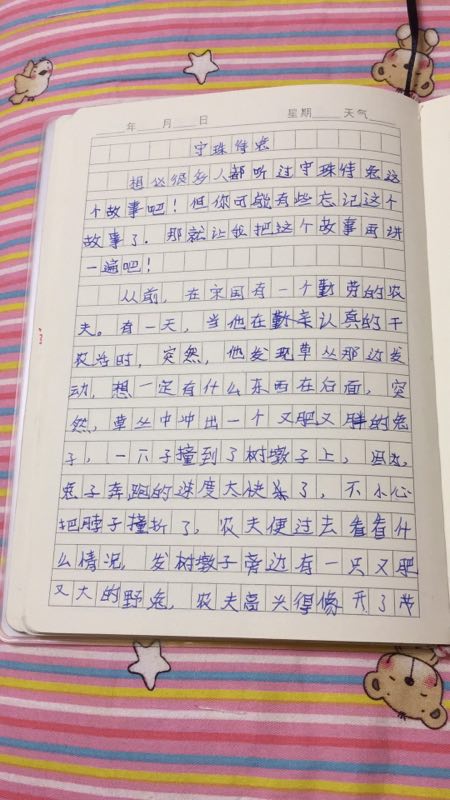 年 月 日 星期 天气
守珠待兔
想必很多人都听过守珠待兔这
个故事吧！但你可能有些忘记这个
故事了．那就让我把这个故事再讲
一遍吧！
从前，在宋国有一个勤劳的农
夫。有一天，当他在勤亲认真的干
农活时，突然，他发现草丛那边发
动，想一定有什么东西在后面，突
然，草丛中冲出一个又肥又胖的兔
子，一下子撞到了树墩子上，因为
兔子奔跑的速度太快 了，不小心
把脖子撞折了，农夫便过去看看什
么情况，发树墩子旁边有一只又肥
又大的野兔，农夫高兴得像开了花